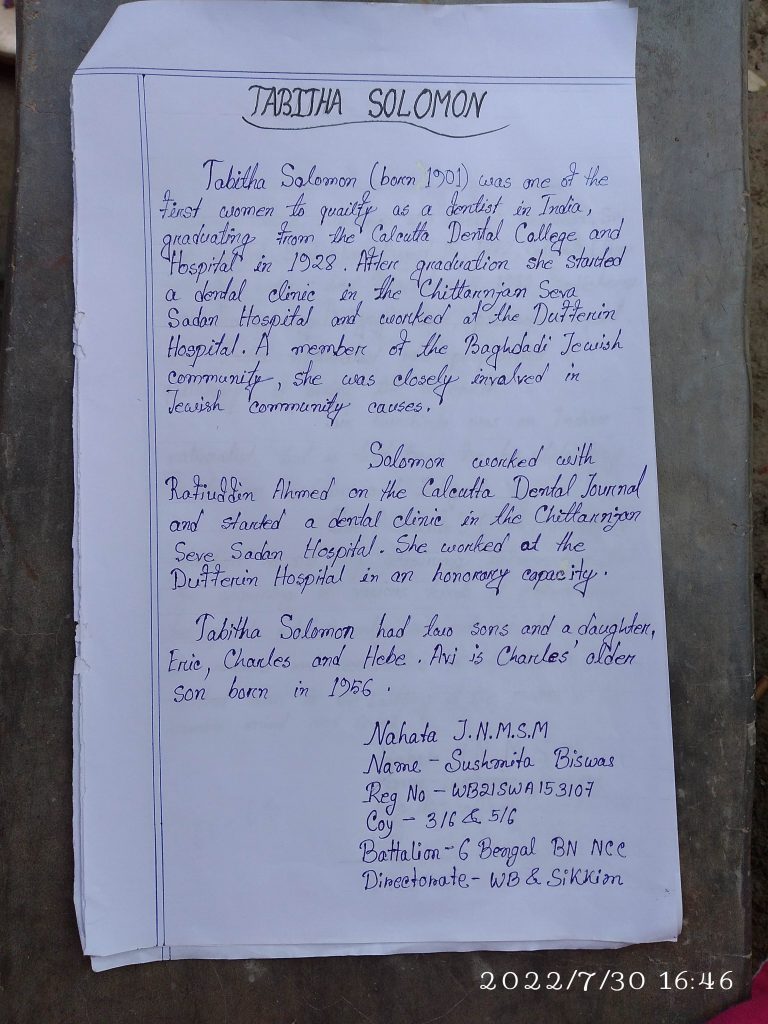 TABITHA SOLOMON
Tabitha Solomon (born 1901) was one of the
first women to quailty as a dentist in India,
graduating from the Calcutta Dental College and
Hospital in 1928. After graduation she started
a dental clinic in the Chittarnjan Seva
Sadan Hospital and worked at the Dufferin
Hospital. A member of the Baghdadi Jewish
community, she was closely involved in
Jewish community causes.
Solomon worked with
Rafiuddin Ahmed on the Calcutta Dental Journal
and started a dental clinic in the Chittarnjan
Seve Sadan Hospital. She worked at the
Dufferin Hospital in an honorary capacity.
Tabitha Solomon had two sons and a daughter,
Eric, Charles and Hebe. Avi is Charles' older
son born in 1956.
Nahata J.N.M.S.M
Name - Sushmita Biswas
Reg No - WB21SWA153107
Coy - 3/6 & 5/6
Battalion - 6 Bengal BN NCC
Directorate - WB & Sikkim
2022/7/30 16:46